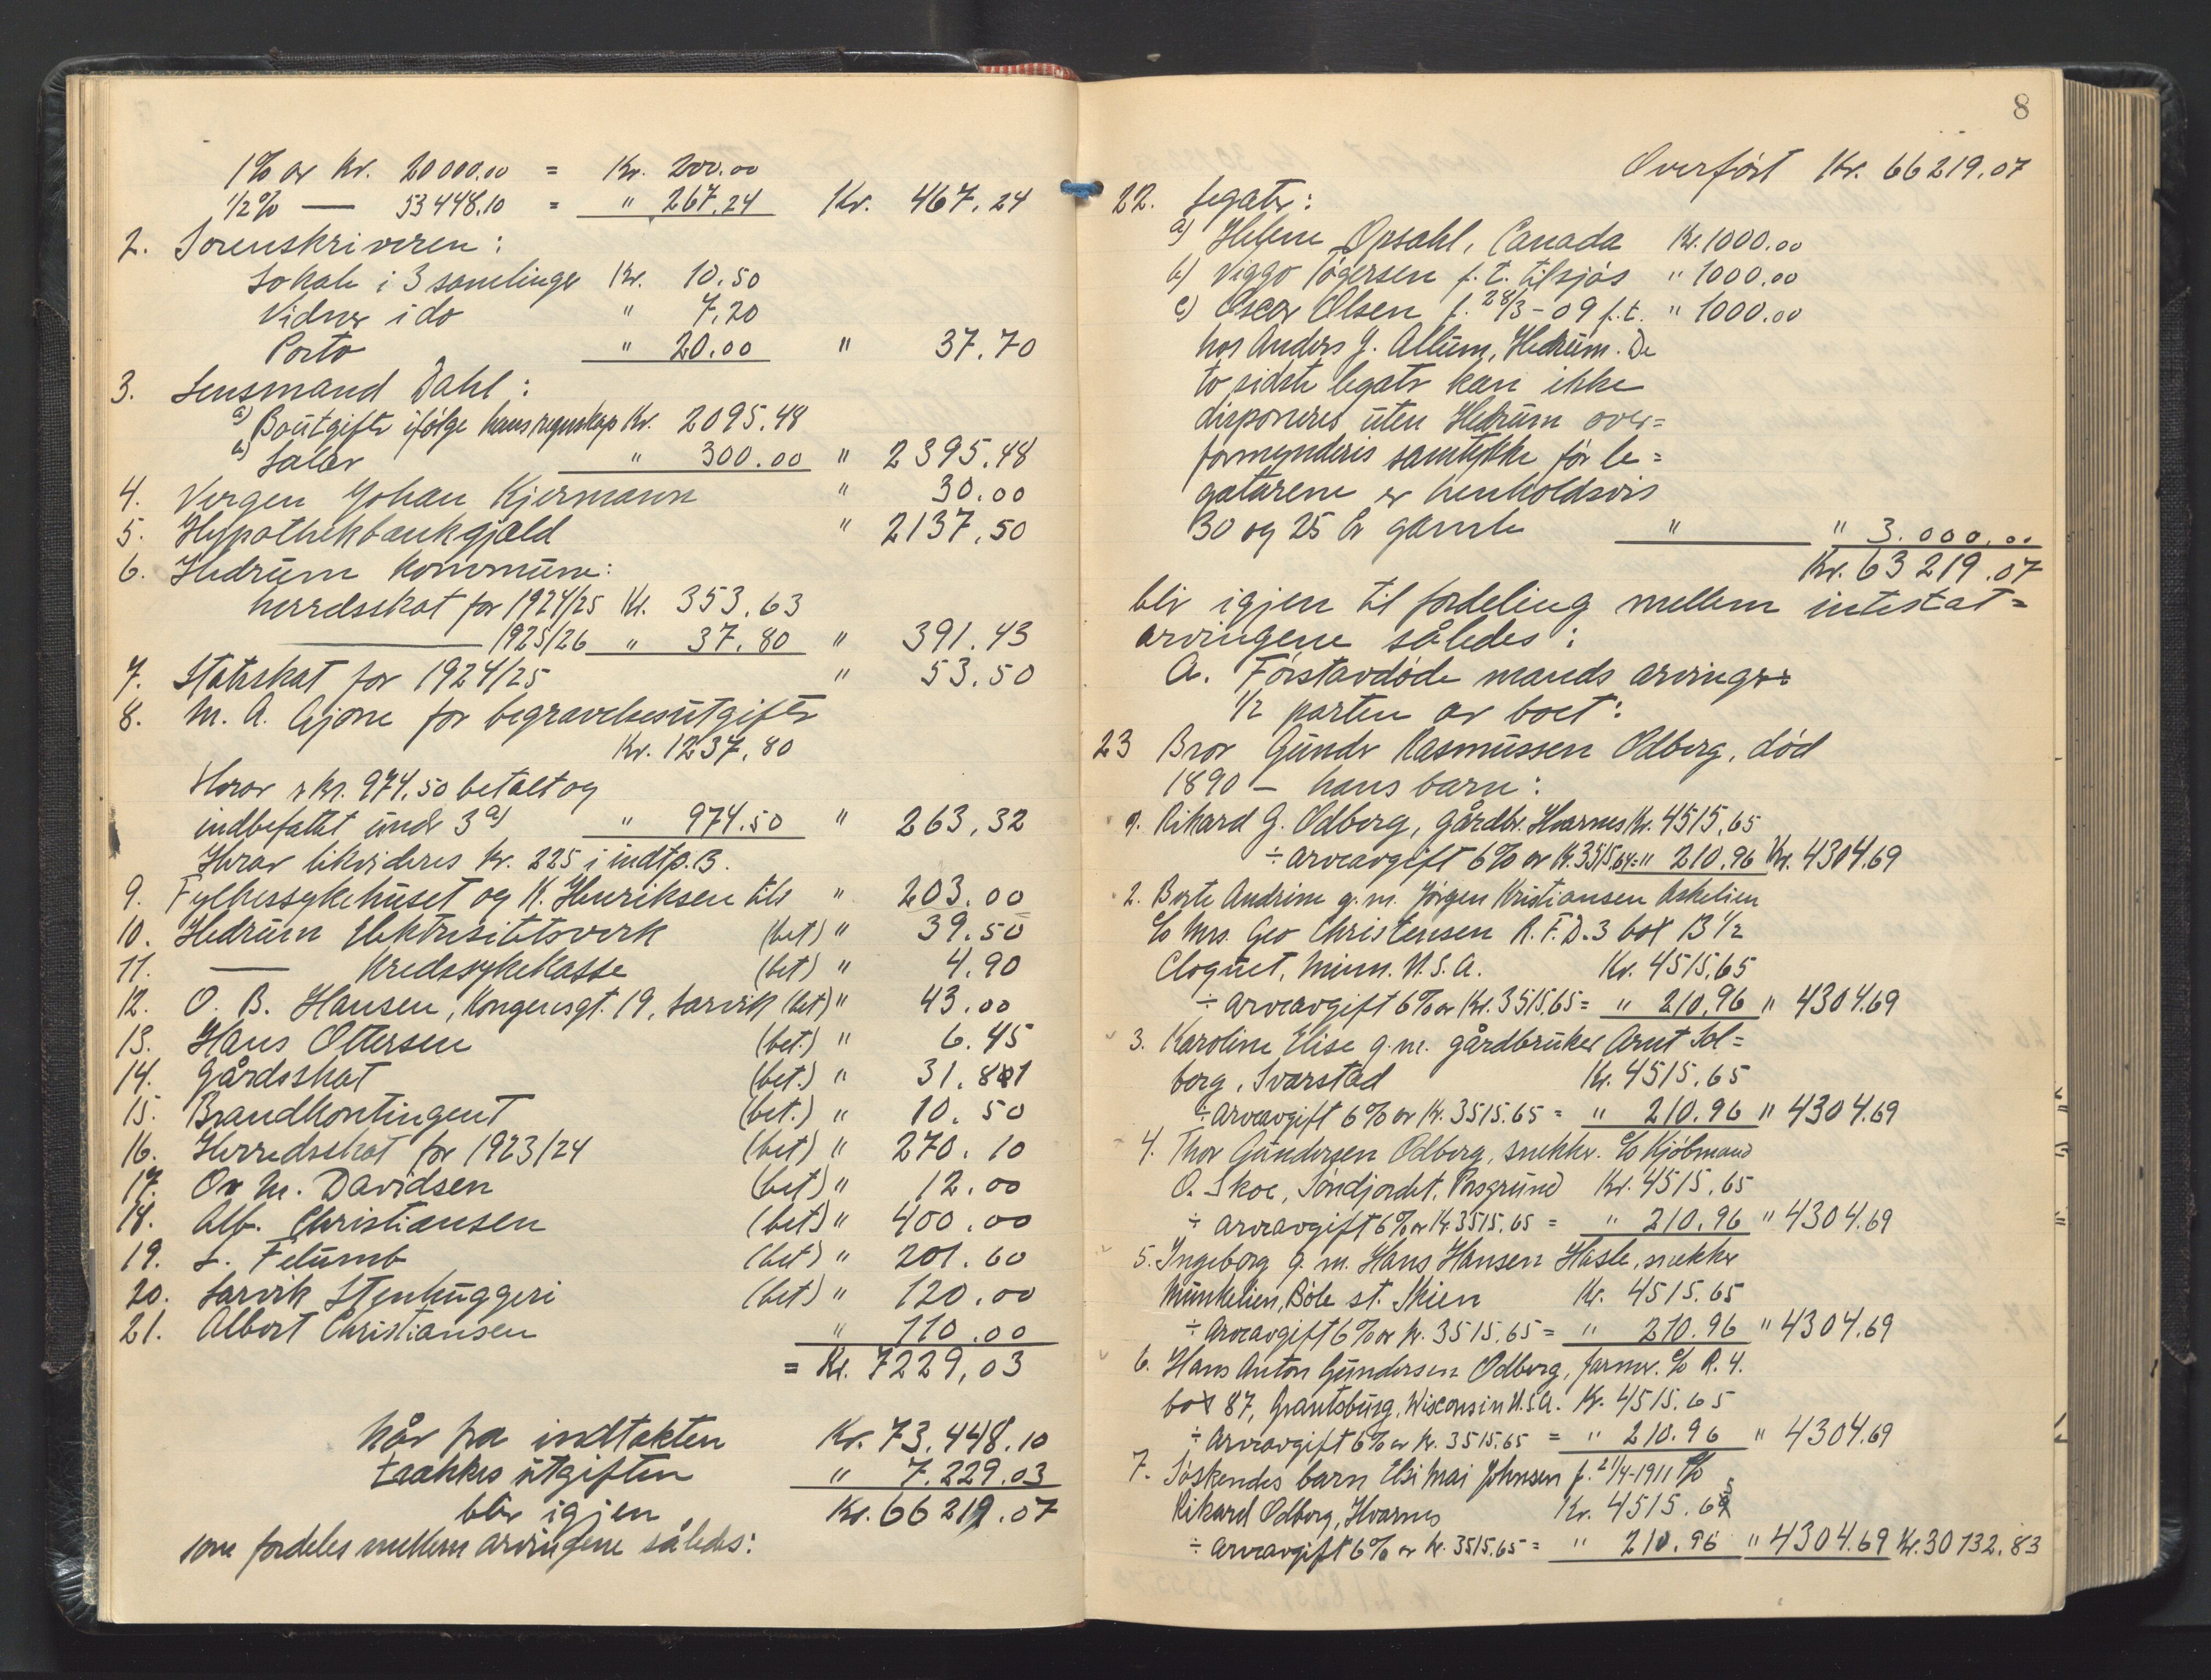 1% av Kr. 20000.00 = Kr. 200.00
1/2% — 53448.10 = " 267.24 Kr. 467.24
2. Sorenskriveren:
Lokale i 3 samlinger Kr. 10.50
Vidner i do " 7.20
Porto " 20.00 " 37.70
3. Lensmand Dahl:
a) Boutgifter ifølge hans regnskap Kr. 2095.48
b) Salær " 300.00 " 2395.48
4. Vergen Johan Kjermann " 30.00
5. Hypothekbankgjæld " 2137.50
6. Hedrum kommune:
herredsskat for 1924/25 Kr. 353.63
— 1925/26 " 37.80 " 391.43
7. Statsskat for 1924/25 " 53.50
8. M. A. Gjone for begravelsesutgifter
Kr. 1237.80
Herav er kr. 974.50 betalt og
indbefattet under 3 a) " 974.50 " 263.32
Herav likvideres kr. 225 i indtp. B.
9. Fylkessykehuset og K. Henriksen tils " 203.00
10. Hedrum Elektrisitetsverk (bet) " 39.50
11. — Kredssykekasse (bet) " 4.90
12. O. B. Hansen, Kongensgt. 19, Larvik (bet) " 43.00
13. Hans Ottersen (bet.) " 6.45
14. Gårdsskat (bet.) " 31.81
15. Brandkontingent (bet.) " 10.50
16. Herredsskat for 1923/24 (bet) " 270.10
17. Ov M. Davidsen (bet) " 12.00
18. Alb. Christiansen (bet) " 400.00
19. L. Felumb (bet) " 201.60
20. Larvik Stenhuggeri (bet) " 120.00
21. Albert Christiansen " 110.00
= Kr. 7229,03
Når fra indtækten Kr. 73.448.10
trækkes utgiften " 7.229.03
blir igjen Kr. 66219.07
som fordeles mellem arvingene således:
8
Overført Kr. 66219.07
22. Legater:
a) Helene Opsahl, Canada Kr. 1000.00
b) Viggo Tøgersen f. t. tilsjøs " 1000.00
c) Oscar Olsen f. 28/3-09 f.t. " 1000.00
hos Anders J. Allum, Hedrum. De
to sidste legater kan ikke
disponeres uten Hedrum over=
formynderis samtykke før le=
gatarene er henholdsvis
30 og 25 år gamle " " 3.000.00
Kr. 63219.07
blir igjen til fordeling mellem intestat=
arvingene således:
A. Førstavdøde mands arvinger:
1/2 parten av boet:
23 Bror Gunder Rasmussen Odberg, død
1890 — hans barn:
1. Rikard G. Odberg, gårdbr. Hvarnes Kr. 4515,65
÷ arveavgift 6% av Kr. 3515.64 = " 210.96 Kr. 4304.69
2. Berte Andrine g. m. Jørgen Kristiansen Askelien
c/o Mrs. Geo Christensen R. F. D. 3 box 13 1/2
Cloquet, Minn. U. S. A. Kr. 4515,65
÷ arveavgift 6% av Kr. 3515.65 = " 210.96 " 4304.69
3. Karoline Elise g. m. gårdbruker Arnt Sol=
berg, Svarstad Kr. 4515.65
÷ arveavgift 6% av Kr. 3515.65 = " 210.96 " 4304.69
4. Thor Gundersen Odberg, snekker. c/o Kjøbmand
O. Skoe, Tondjordet. Porsgrund Kr. 4515.65
÷ arveavgift 6% av Kr. 3515.65 = " 210.96 " 4304.69
5. Ingeborg g. m. Hans Hansen Hasle, snekker
Munkelien, Bøle st. Skien Kr. 4515.65
÷ arveavgift 6% av Kr. 3515.65 = " 210.96 " 4304.69
6. Hans Anton Gundersen Odberg, farmer. c/o R. 4.
box 87, Grantsburg, Wisconsin U.S.A. Kr. 4515.65
÷ arveavgift 6% av Kr. 3515.65 = " 210.96 " 4304.69
7. Søskendes barn Elsi Mai Johnsen f. 21/4-1911 c/o
Rikard Odberg, Hvarnes Kr. 4515.65
÷ arveavgift 6% av Kr. 3515.65 = " 210.96 " 4304.69 Kr. 30132.83